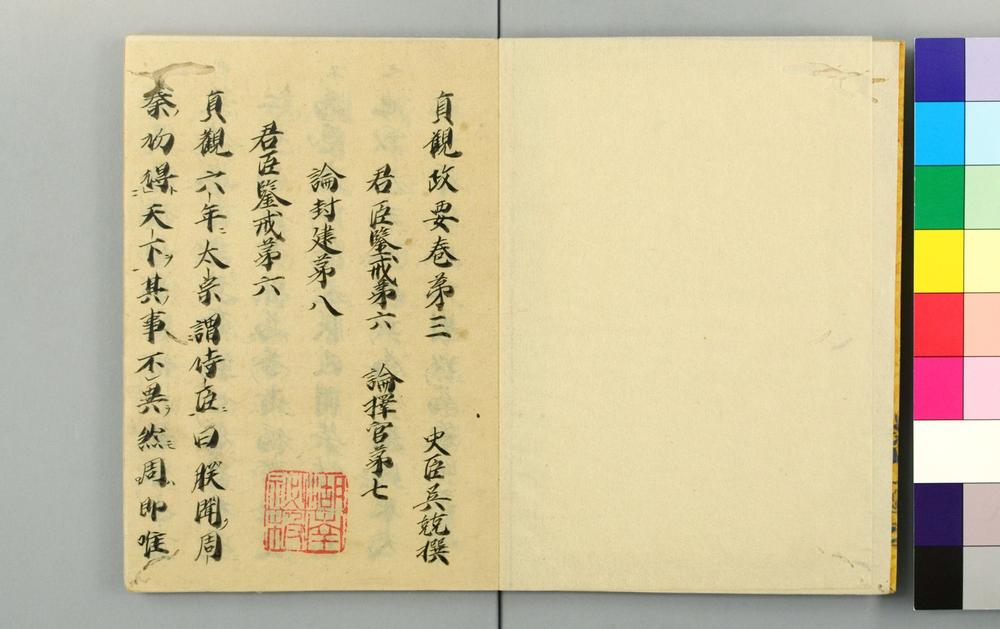 貞觀政要卷第三　史臣吳兢撰
君臣鑒戒第六　論擇官第七
論封建第八
君臣鑒戒第六
貞觀六年太宗謂侍臣曰朕聞周
秦初得天下其事不異然周即唯